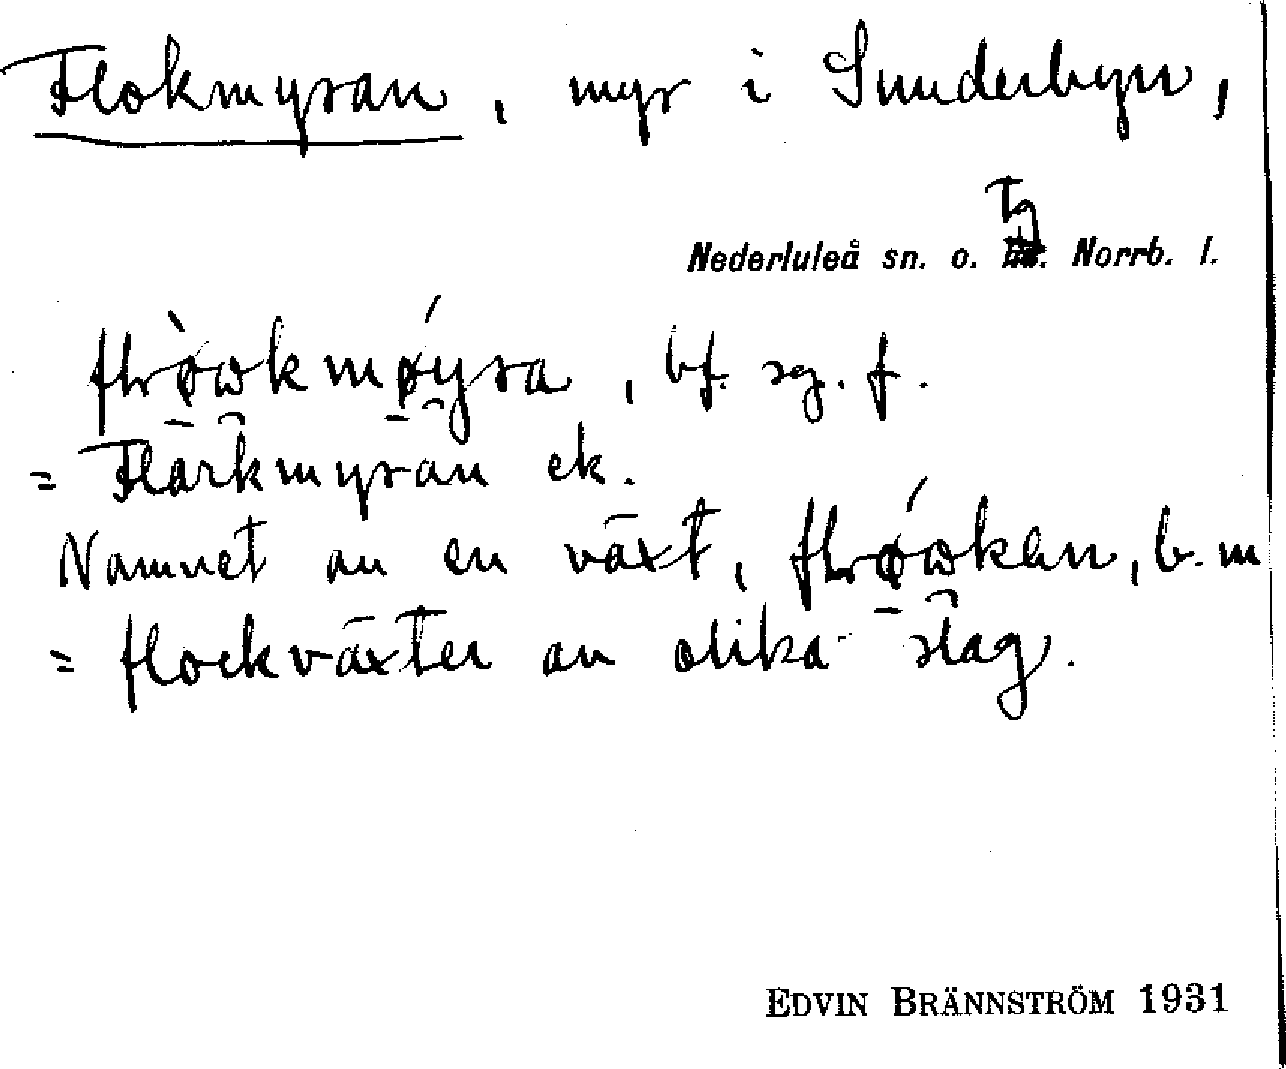 Flokmyran, myr i Sunderbyn,
Nederluleå sn. o. Tg Norrb. l.
bf. sg. f.
= Flärkmyran ek.
Namnet av en växt, b. m
= flockväxter av olika slag.
EDVIN BRÄNNSTRÖM 1931